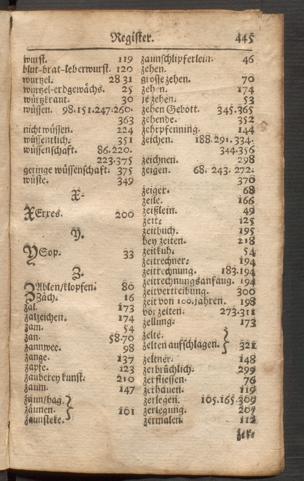 Register. 445
wurst. 119
blut-brat-leberwurst. 120
wurtzel. 28.31
wurtzel-erdgewächs. 25
würtzkrant. 30
wüssen. 98.151.247.260.
363
nicht wüssen. 224
wüssentlich. 351
wüssenschaft. 86.220.
223.375
geringe wüssenschaft. 375
wüste. 349
X.
XErxes. 200
Y.
YSop. 33
Z.
ZAhlen/klopfen. 80
Zäch. 16
zal. 173
zalzeichen. 174
zam. 54
zan. 58.70
zannweh. 98
zange. 137
zapfe. 123
zauberey kunst. 210
zaum. 147
zaun/hag.
zäunen. 101
zaunstecke.
zaunschlipferlein. 46
zehen.
grosse zehen. 70
zehen. 174
je zehen. 53
zehen Gebott. 345.365
zehende. 352
zehrpfenning. 144
zeichen. 188.291.334.
344.356
zeichnen. 298
zeigen. 68.243.272.
370
zeiger. 68
zeile. 166
zeißlein. 49
zeit. 125
zeitbuch. 195
bey zeiten. 218
zeitkuh. 54
zeitrechner. 194
zeitrechnung. 183.194
zeitrechnungsanfang. 194
zeitvertreibung. 300
zeit von 100. jahren. 198
vor zeiten. 273.311
zellung. 173
zelte.
zelten aufschlagen. 321
zeltner. 148
zerbrüchlich. 299
zerfliessen. 76
zerhauen. 119
zerlegen. 105.165.309
zerlegung. 209
zermalen. 112